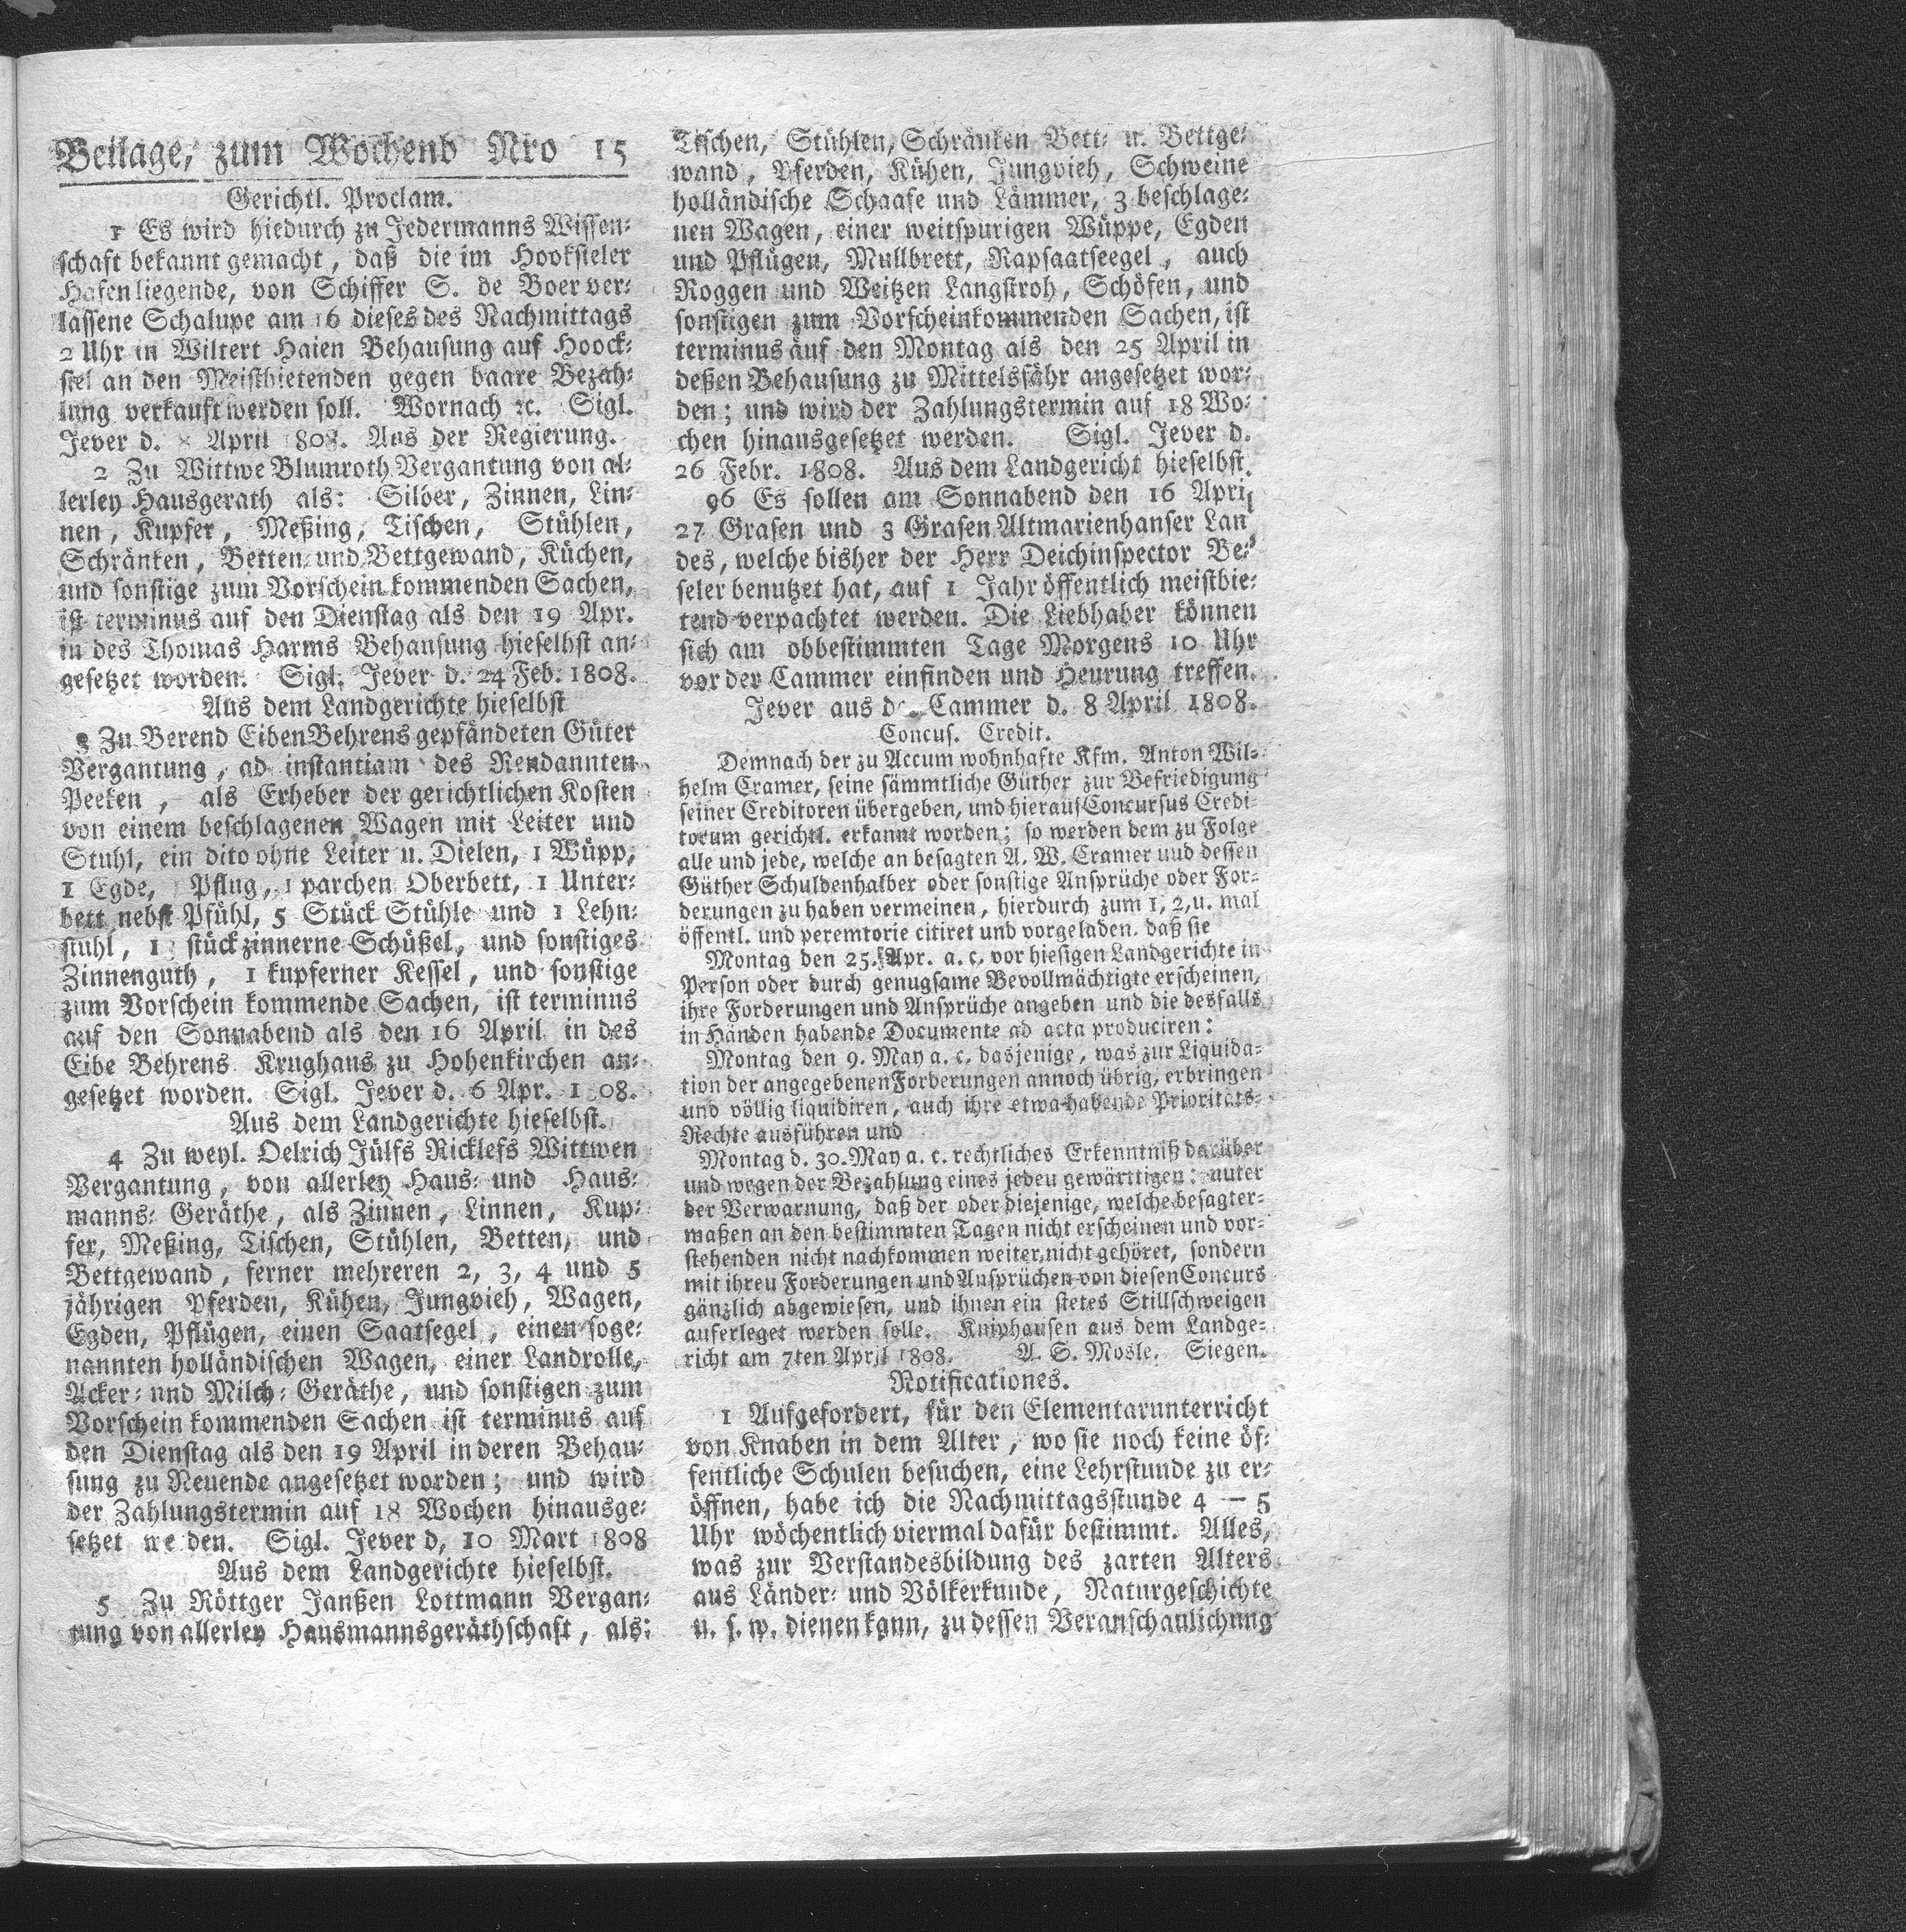 Beilage, zum Wochenb Nro 15
Gerichtl. Proclam.
1 Es wird hiedurch zu Jedermanns Wissen-
schaft bekannt gemacht, daß die im Hooksieler
Hafen liegende, von Schiffer S. de Boer ver-
lassene Schalupe am 16 dieses des Nachmittags
2 Uhr in Wiltert Haien Behausung auf Hoock-
siel an den Meistbietenden gegen baare Bezah-
lung verkauft werden soll. Wornach ꝛc. Sigl.
Jever d. April 1808. Aus der Regierung.
2 Zu Wittwe Blumroth Vergantung von al-
lerley Hausgerath als: Silber, Zinnen, Lin-
nen, Kupfer, Meßing, Tischen, Stühlen,
Schränken, Betten und Bettgewand, Küchen,
und sonstige zum Vorschein kommenden Sachen,
ist terminus auf den Dienstag als den 19 Apr.
in des Thomas Harms Behausung hieselbst an-
gesetzet worden. Sigl. Jever d. 24 Feb. 1808.
Aus dem Landgerichte hieselbst
3 Zu Berend Eiben Behrens gepfändeten Güter
Vergantung, ad instantiam des Rendannten
Peeken, als Erheber der gerichtlichen Kosten
von einem beschlagenen Wagen mit Leiter und
Stuhl, ein dito ohne Leiter u. Dielen, 1 Wüpp,
1 Egde, Pflug, 1 parchen Oberbett, 1 Unter-
bett nebst Pfühl, 5 Stück Stühle und 1 Lehn-
stuhl, 1 stück zinnerne Schüßel, und sonstiges
Zinnenguth, 1 kupferner Kessel, und sonstige
zum Vorschein kommende Sachen, ist terminus
auf den Sonnabend als den 16 April in des
Eibe Behrens Krughaus zu Hohenkirchen an-
gesetzet worden. Sigl. Jever d. 6 Apr. 1 08.
Aus dem Landgerichte hieselbst.
4 Zu weyl. Oelrich Jülfs Ricklefs Wittwen
Vergantung, von allerley Haus- und Haus-
manns- Geräthe, als Zinnen, Linnen, Kup-
fer, Meßing, Tischen, Stühlen, Betten, und
Bettgewand, ferner mehreren 2, 3, 4 und 5
jährigen Pferden, Kühen, Jungvieh, Wagen,
Egden, Pflügen, einen Saatsegel, einen soge-
nannten holländischen Wagen, einer Landrolle,
Acker- und Milch- Geräthe, und sonstigen zum
Vorschein kommenden Sachen ist terminus auf
den Dienstag als den 19 April in deren Behau-
sung zu Neuende angesetzet worden; und wird
der Zahlungstermin auf 18 Wochen hinausge-
setzet we den. Sigl. Jever d, 10 Mart 1808
Aus dem Landgerichte hieselbst.
5 Zu Röttger Janßen Lottmann Vergan-
tung von allerley Hausmannsgeräthschaft, als:
Tischen, Stühlen, Schränken Bett- u. Bettge-
wand, Pferden, Kühen, Jungvieh, Schweine
holländische Schaafe und Lämmer, 3 beschlage-
nen Wagen, einer weitspurigen Wüppe, Egden
und Pflügen, Mullbrett, Rapsaatseegel, auch
Roggen und Weitzen Langstroh, Schöfen, und
sonstigen zum Vorscheinkommenden Sachen, ist
terminus auf den Montag als den 25 April in
deßen Behausung zu Mittelsfähr angesetzet wor-
den; und wird der Zahlungstermin auf 18 Wo-
chen hinausgesetzet werden. Sigl. Jever d.
26 Febr. 1808. Aus dem Landgericht hieselbst.
96 Es sollen am Sonnabend den 16 April
27 Grasen und 3 Grasen Altmarienhauser Lan
des, welche bisher der Herr Deichinspector Be-
seler benutzet hat, auf 1 Jahr öffentlich meistbie-
tend verpachtet werden. Die Liebhaber können
sich am obbestimmten Tage Morgens 10 Uhr
vor der Cammer einfinden und Heurung treffen.
Jever aus de Cammer d. 8 April 1808.
Concus. Credit.
Demnach der zu Accum wohnhafte Kfm. Anton Wil-
helm Cramer, seine sämmtliche Güther zur Befriedigung
seiner Creditoren übergeben, und hierauf Concursus Credi-
torum gerichtl. erkannt worden; so werden dem zu Folge
alle und jede, welche an besagten A. W. Cramer uud dessen
Güther Schuldenhalber oder sonstige Ansprüche oder For-
derungen zu haben vermeinen, hierdurch zum 1, 2, u. mal
öffentl. und peremtorie citiret und vorgeladen. daß sie
Montag den 25. Apr. a. c. vor hiesigen Landgerichte in
Person oder durch genugsame Bevollmächtigte erscheinen,
ihre Forderungen und Ansprüche angeben und die desfalls
in Händen habende Documente ad acta produciren:
Montag den 9. May a. c. dasjenige, was zur Liquida-
tion der angegebenen Forderungen annoch übrig, erbringen
und völlig liquidiren, auch ihre etwa habende Prioritäts-
Rechte ausführen und
Montag d. 30. May a. c. rechtliches Erkenntniß darüber
und wegen der Bezahlung eines jeden gewärttigen: unter
der Verwarnung, daß der oder diejenige, welche besagter-
maßen an den bestimmten Tagen nicht erscheinen und vor-
stehenden nicht nachkommen weiter nicht gehöret, sondern
mit ihreu Forderungen und Ansprüchen von diesen Concurs
gänzlich abgewiesen, und ihnen ein stetes Stillschweigen
auferleget werden solle. Kniphausen aus dem Landge-
richt am 7ten April 1808. A. S. Mosle. Siegen.
Notificationes.
1 Aufgefordert, für den Elementarunterricht
von Knaben in dem Alter, wo sie noch keine öf-
fentliche Schulen besuchen, eine Lehrstunde zu er-
öffnen, habe ich die Nachmittagsstunde 4 — 5
Uhr wöchentlich viermal dafür bestimmt. Alles,
was zur Verstandesbildung des zarten Alters
aus Länder- und Völkerkunde, Naturgeschichte
u. s. w. dienen kann, zu dessen Veranschaulichung